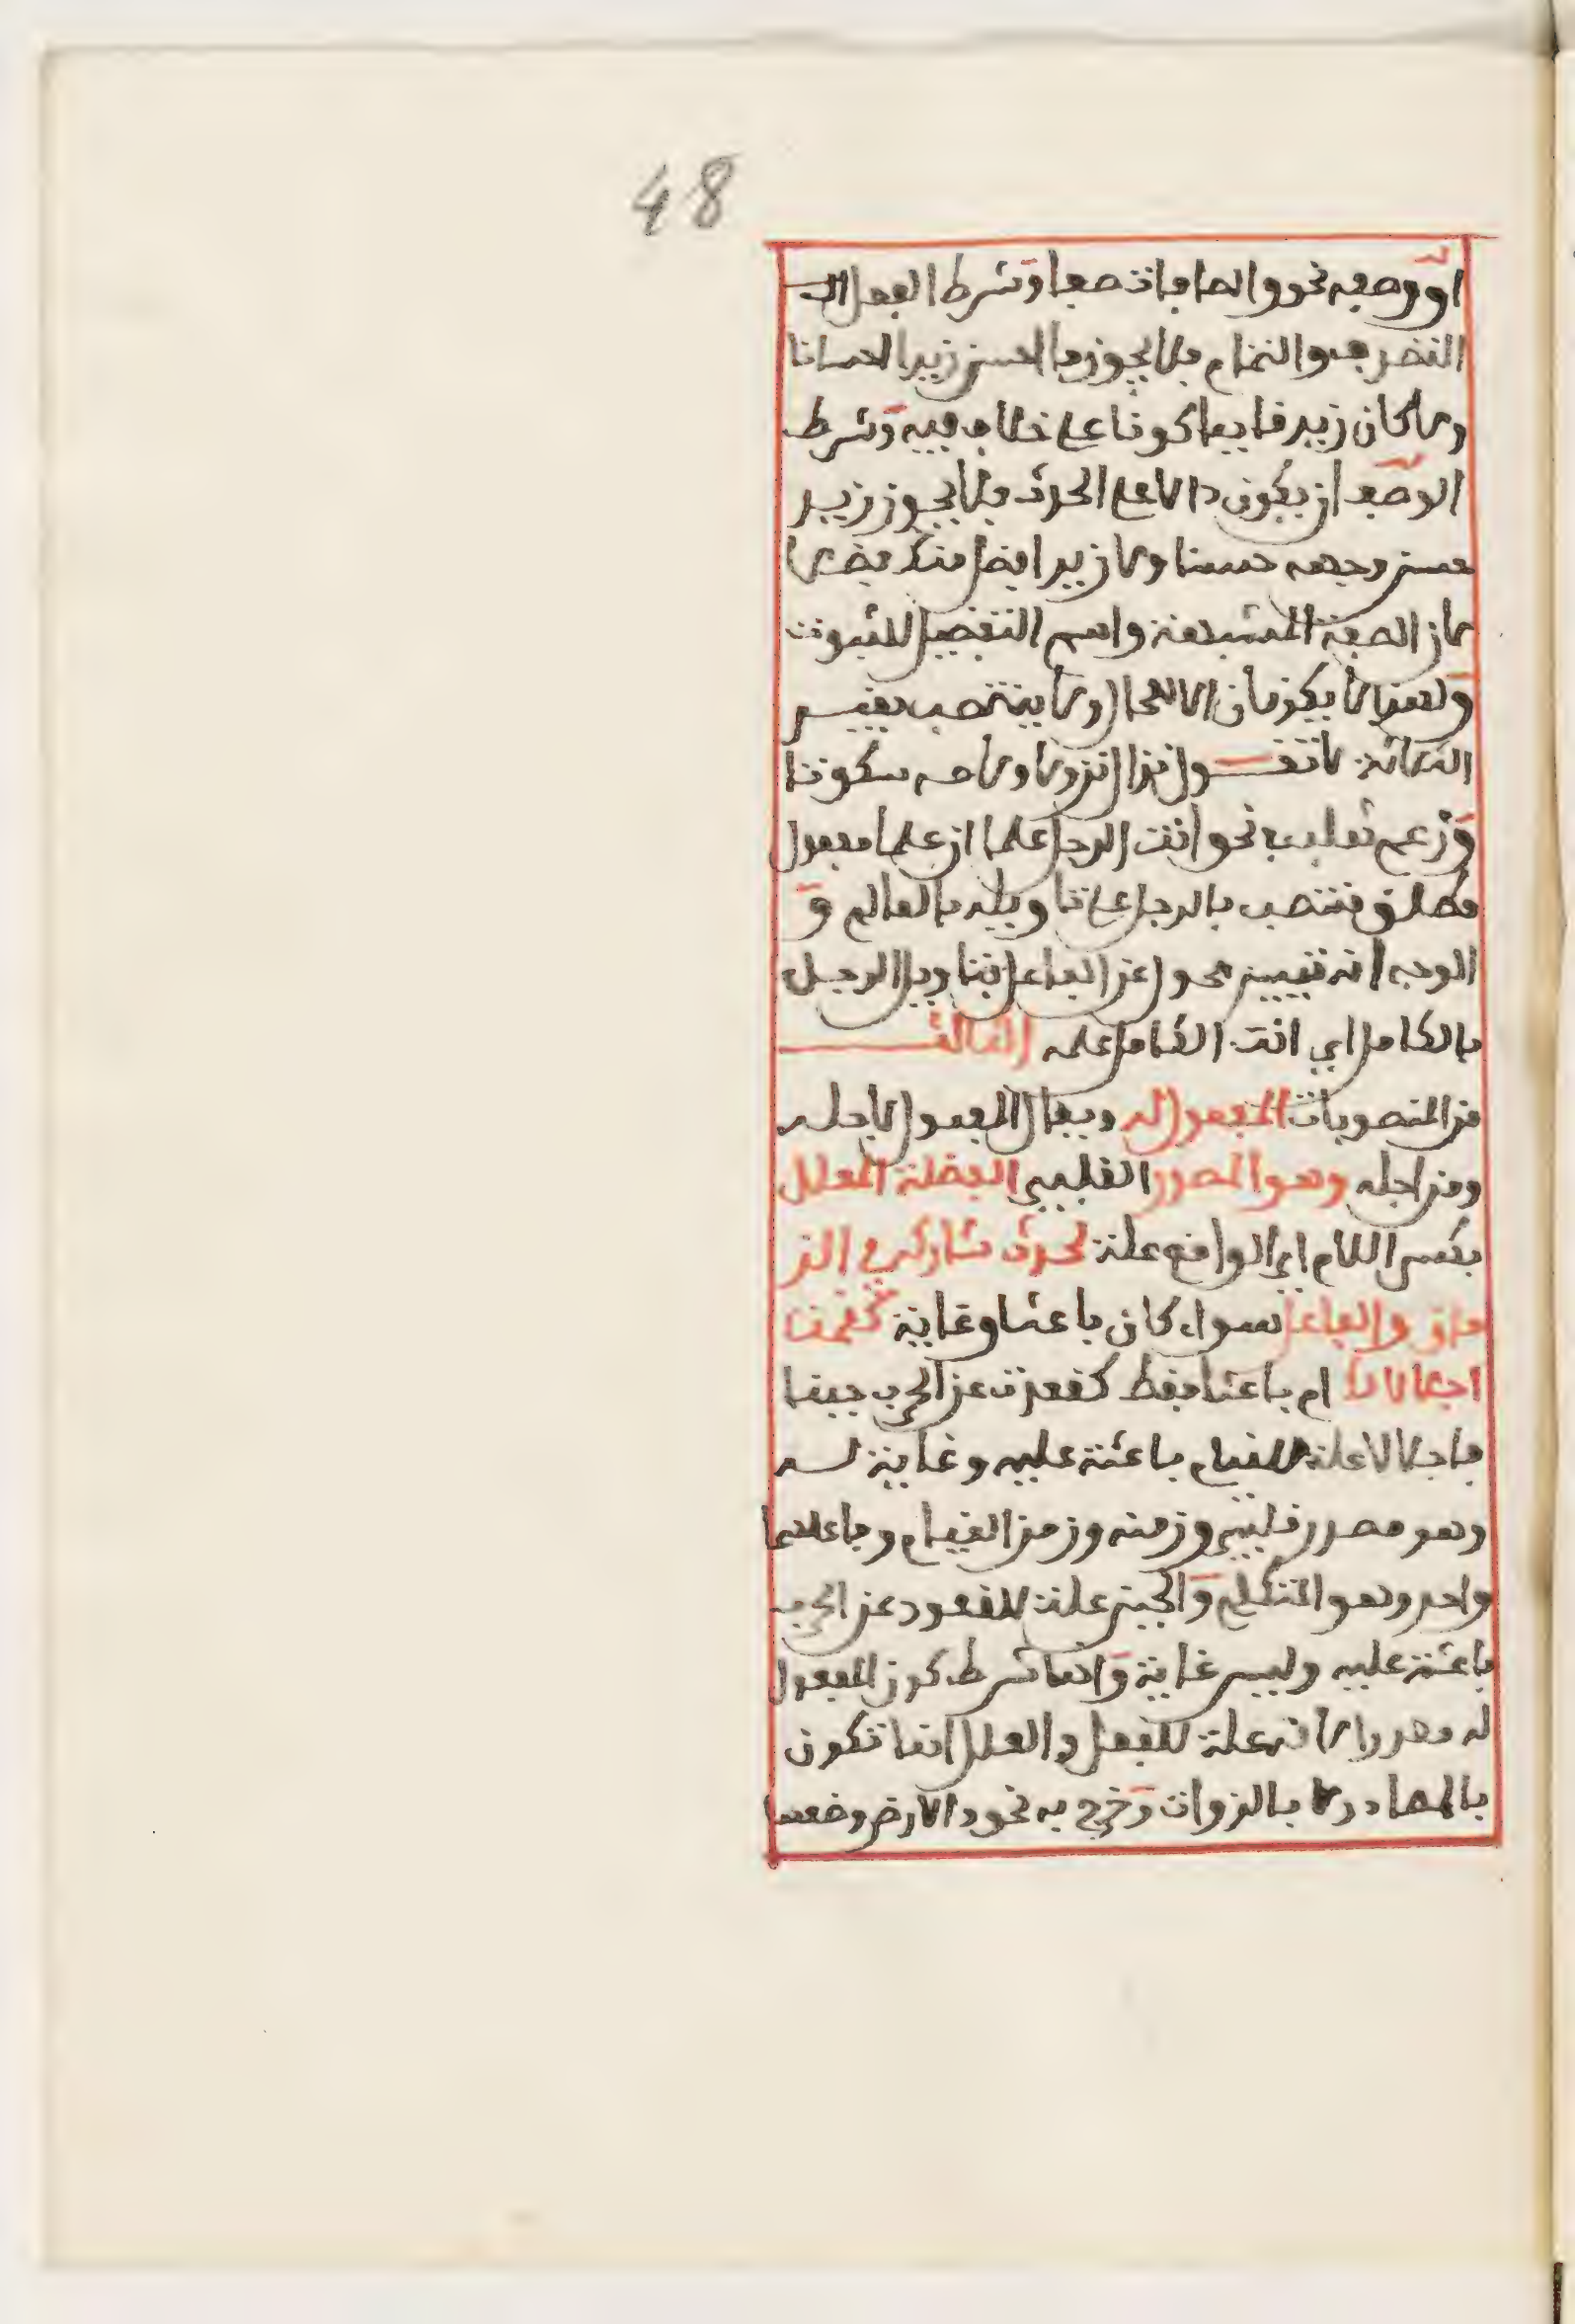 48
او وصفه نحو والصافات صفا وشرط الفعل
التصرف والتمام فلا يجوز ما احسن زيدا احسانا
ولا كان زيد قائما كونا على خلاف فيه وشرط
الوصف ان يكون دالا على الحدث فلا يجوز زيد
حسن وجهه حسنا ولا زيد افضل منك فضلا
لان الصفة المشبهة واسم التفضيل للثبوت
ولهذا لا يكونان الا للحال ولا ينتصب بقيس
الثلاثة لا تقول نزال نزولا ولا صه سكوتا
وزعم ثعلب نحو انت الرجل علما ان علما مفعول
مطلق منتصب بالرجل على تاويله بالعالم و
الوجه انه تمييز محول عن الفاعل بتاويل الرجل
بالكامل اي انت الكامل علمه الثالث
من المنصوبات المفعول له ويقال المفعول لاجله
ومن اجله وهو المصدر القلبي الفضلة المعلل
بكسر اللام اي الواقع علة لحدث شاركه في الز
مان والفاعل سواء كان باعثا وغاية كقمت
اجلالا لك ام باعثا فقط كقعدت عن الحرب جبنا
فاجلالا علة للقيام باعثة عليه وغاية له
وهو مصدر قلبي وزمنه وزمن القيام وفاعلهما
واحد وهو المتكلم والجبن علة للقعود عن الحرب
باعثة عليه وليس غاية وانما شرط كون المفعول
له مصدرا لانه علة للفعل والعلل انما تكون
بالمصادر لا بالذوات وخرج به نحو والارض وضعها